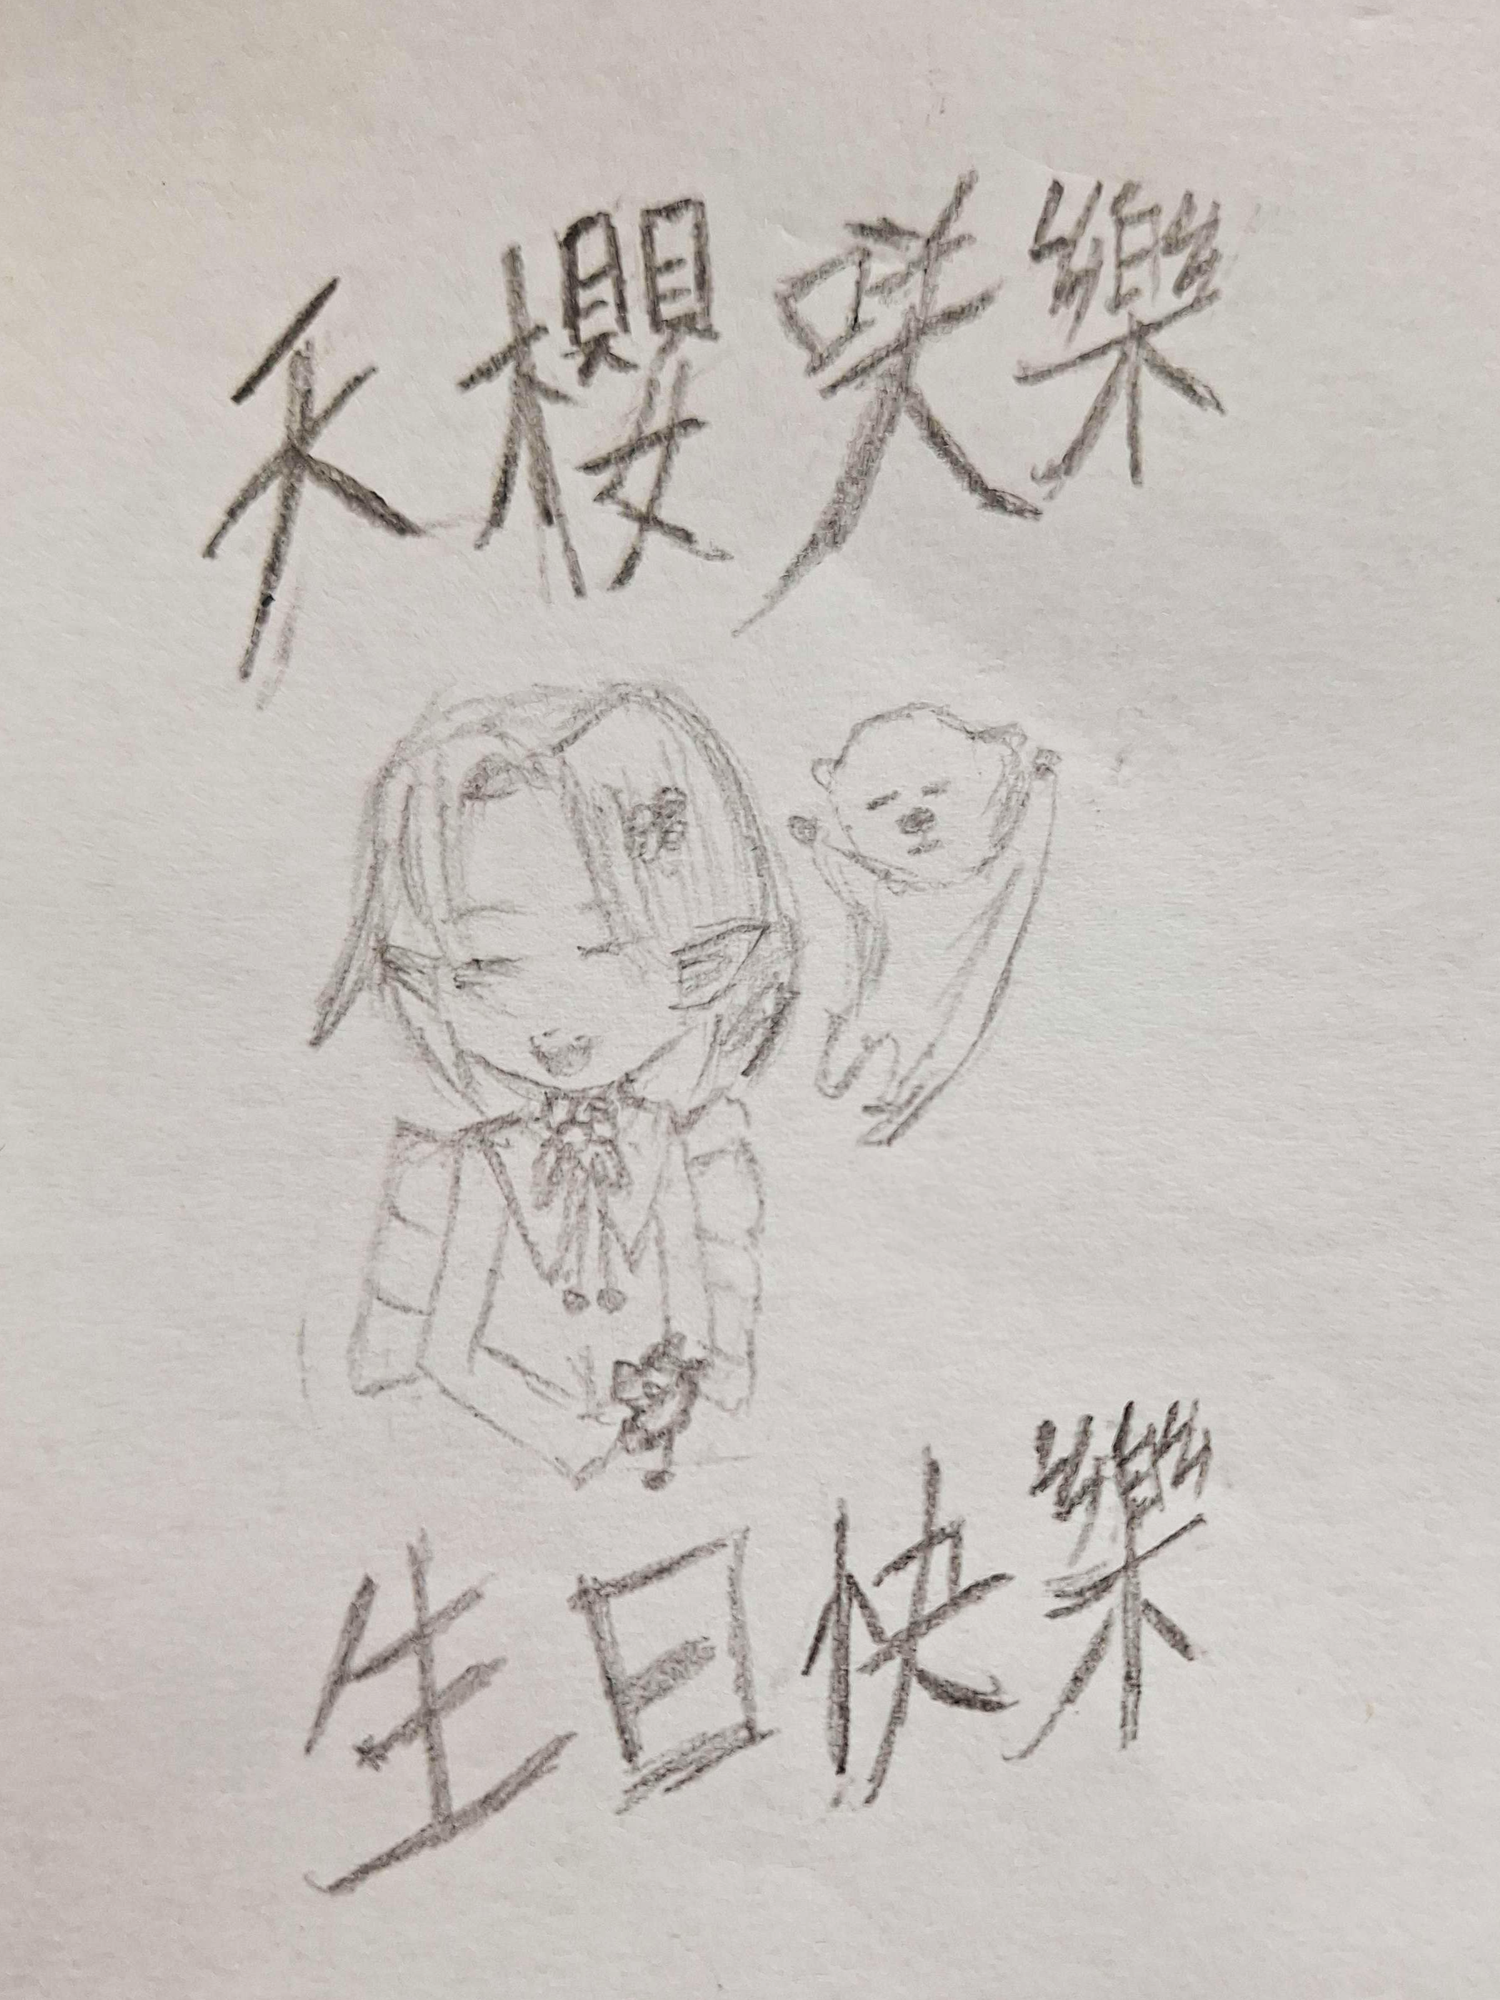 禾櫻咲樂
生日快樂